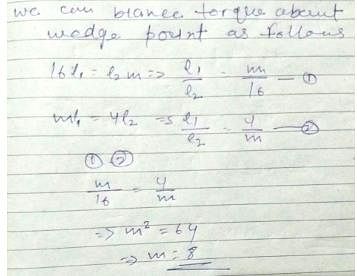 we can blance torque about
wedge point as follows
16l₁ = l₂m => l₁/l₂ = m/16 — ①
ml₁ = 4l₂ => l₁/l₂ = 4/m — ②
① ②
m/16 = 4/m
=> m² = 64
=> m = 8